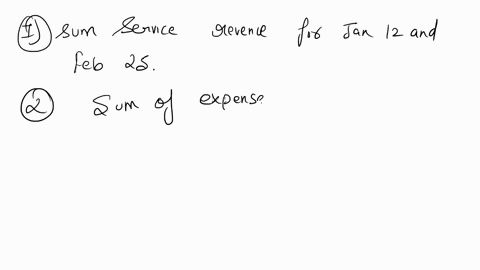 1) Sum Service revence for Jan 12 and
Feb 25.
2 Sum of expense